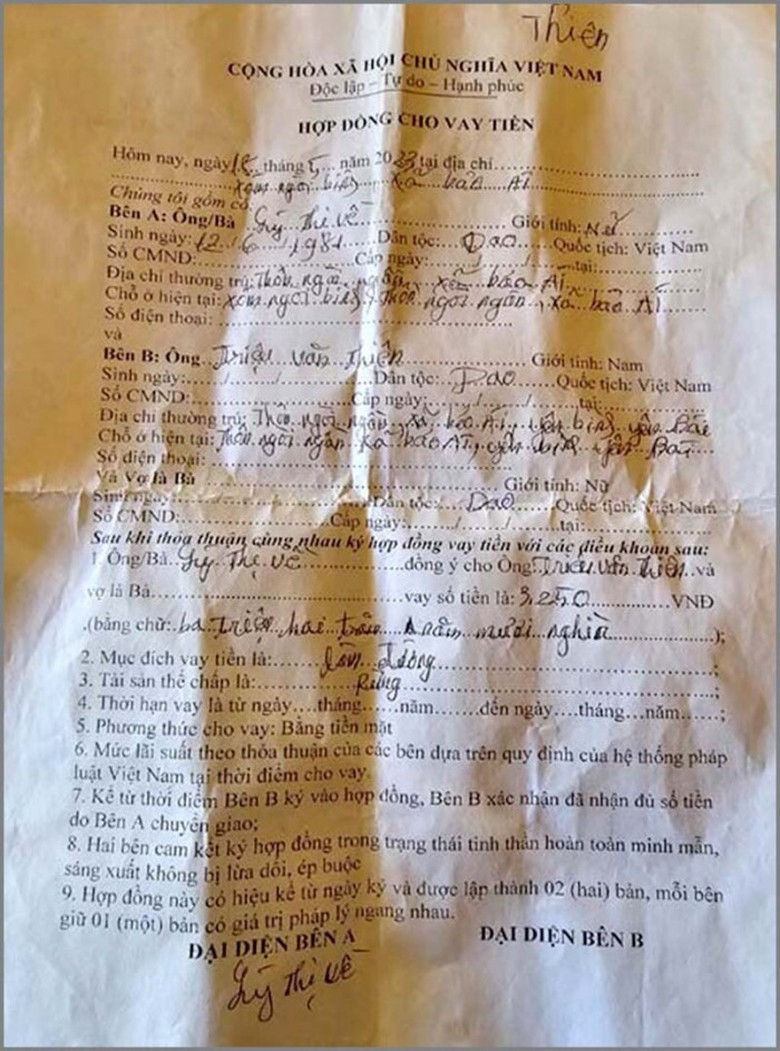 Thiên
CỘNG HÒA XÃ HỘI CHỦ NGHĨA VIỆT NAM
Độc lập – Tự do – Hạnh phúc
HỢP ĐỒNG CHO VAY TIỀN
Hôm nay, ngày 15 tháng 5 năm 2023 tại địa chỉ
xóm ngòi bình xã bảo Ái
Chúng tôi gồm có
Bên A: Ông/Bà Lý Thị Về Giới tính: Nữ
Sinh ngày: 12/6/1981 Dân tộc: Dao Quốc tịch: Việt Nam
Số CMND: Cấp ngày: / / tại:
Địa chỉ thường trú: Thôn ngòi ngần xã bảo Ái
Chỗ ở hiện tại: xóm ngòi bình, Thôn ngòi ngần, xã bảo Ái
Số điện thoại:
và
Bên B: Ông Triệu văn Thiên Giới tính: Nam
Sinh ngày: / / Dân tộc: Dao Quốc tịch: Việt Nam
Số CMND: Cấp ngày: / / tại:
Địa chỉ thường trú: Thôn ngòi ngần, xã bảo Ái, yên bình yên Bái
Chỗ ở hiện tại: Thôn ngòi ngần xã bảo Ái, yên bình yên Bái
Số điện thoại:
Và Vợ là Bà Giới tính: Nữ
Sinh ngày: / / Dân tộc: Dao Quốc tịch: Việt Nam
Số CMND: Cấp ngày: / / tại:
Sau khi thỏa thuận cùng nhau ký hợp đồng vay tiền với các điều khoản sau:
1. Ông/Bà Lý Thị Về đồng ý cho Ông Triệu văn Thiên và
vợ là Bà vay số tiền là: 3,250 VNĐ
(bằng chữ: ba triệu hai trăm năm mươi nghìn );
2. Mục đích vay tiền là: ;
3. Tài sản thế chấp là: Rừng ;
4. Thời hạn vay là từ ngày....tháng......năm......đến ngày....tháng...năm......;
5. Phương thức cho vay: Bằng tiền mặt
6. Mức lãi suất theo thỏa thuận của các bên dựa trên quy định của hệ thống pháp
luật Việt Nam tại thời điểm cho vay.
7. Kể từ thời điểm Bên B ký vào hợp đồng, Bên B xác nhận đã nhận đủ số tiền
do Bên A chuyển giao;
8. Hai bên cam kết ký hợp đồng trong trạng thái tinh thần hoàn toàn minh mẫn,
sáng xuất không bị lừa dối, ép buộc
9. Hợp đồng này có hiệu kể từ ngày ký và được lập thành 02 (hai) bản, mỗi bên
giữ 01 (một) bản có giá trị pháp lý ngang nhau.
ĐẠI DIỆN BÊN A ĐẠI DIỆN BÊN B
Lý Thị Về